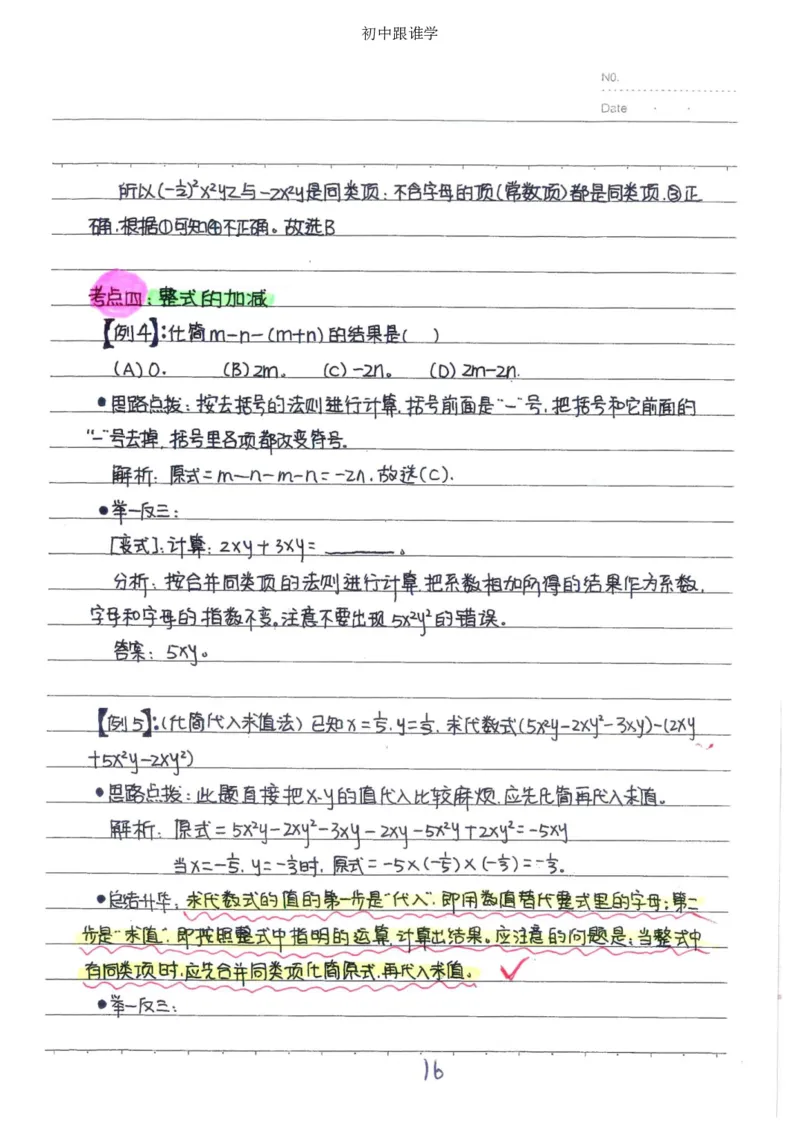 初中跟谁学
NO.
Date
所以(-½)²x²yz与-2x²y是同类项；不含字母的项(常数项)都是同类项.③正
确.根据①可知④不正确。故选B
考点四：整式的加减
【例4】：化简m-n-(m+n)的结果是(  )
(A)0. (B)2m。 (C)-2n。 (D)2m-2n.
•思路点拨：按去括号的法则进行计算.括号前面是"-"号,把括号和它前面的
"-"号去掉,括号里各项都改变符号.
解析：原式=m-n-m-n=-2n.故选(C).
•举一反三：
[变式]：计算：2xy+3xy=______。
分析：按合并同类项的法则进行计算.把系数相加所得的结果作为系数.
字母和字母的指数不变。注意不要出现5x²y²的错误。
答案：5xy。
【例5】：(化简代入求值法)已知x=⅕.y=⅓.求代数式(5x²y-2xy²-3xy)-(2xy
+5x²y-2xy²)
•思路点拨：此题直接把x.y的值代入比较麻烦.应先化简再代入求值。
解析：原式=5x²y-2xy²-3xy-2xy-5x²y+2xy²=-5xy
当x=-⅕.y=-⅓时.原式=-5×(-⅕)×(-⅓)=-⅓。
•总结升华：求代数式的值的第一步是"代入".即用数值替代整式里的字母;第二
步是"求值".即按照整式中指明的运算,计算出结果。应注意的问题是：当整式中
有同类项时,应先合并同类项化简原式,再代入求值。
•举一反三：
16